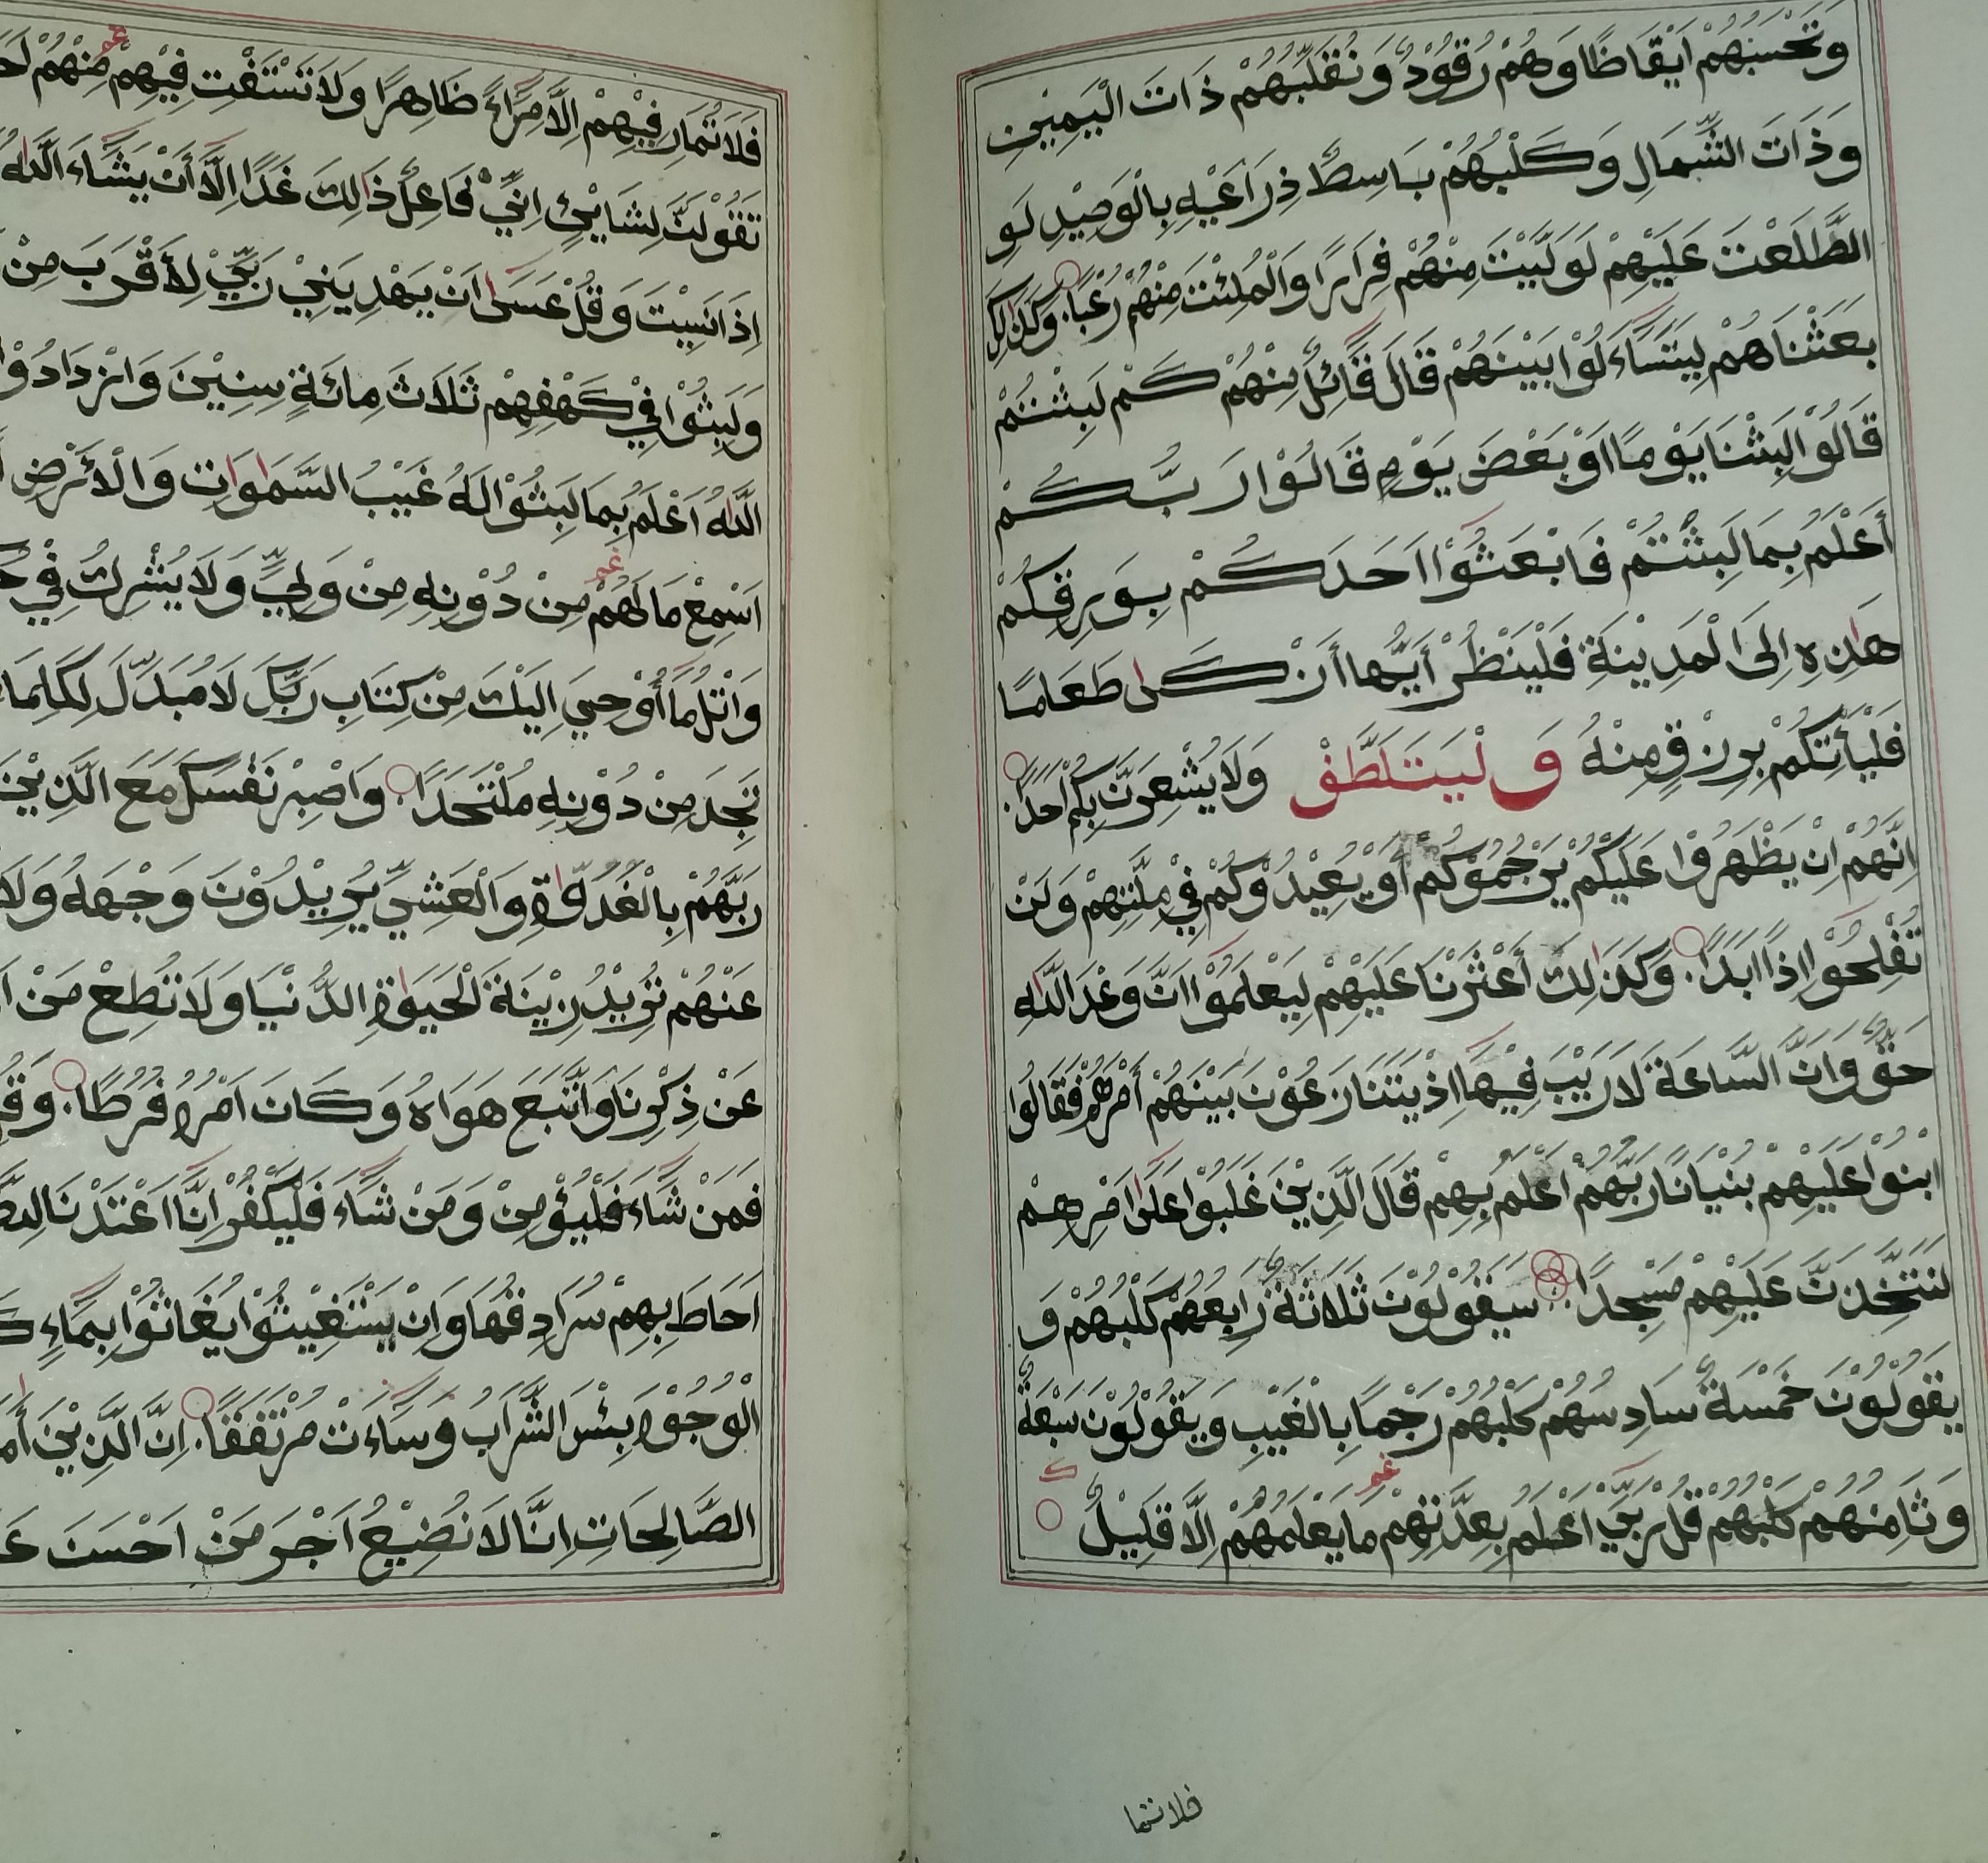 وَتَحْسَبُهُمْ اَيْقَاظًا وَهُمْ رُقُوْدٌ وَنُقَلِّبُهُمْ ذَاتَ الْيَمِيْنِ
وَذَاتَ الشِّمَالِ وَكَلْبُهُمْ بَاسِطٌ ذِرَاعَيْهِ بِالْوَصِيْدِ لَوِ
الطَّلَعْتَ عَلَيْهِمْ لَوَلَّيْتَ مِنْهُمْ فِرَارًا وَالْمُلِئْتَ مِنْهُمْ رُعْبًا وَكَذٰلِكَ
بَعَثْنَاهُمْ لِيَتَسَاءَلُوْا بَيْنَهُمْ قَالَ قَائِلٌ مِنْهُمْ كَمْ لَبِثْتُمْ
قَالُوْا لَبِثْنَا يَوْمًا اَوْ بَعْضَ يَوْمٍ قَالُوْا رَبُّكُمْ
أَعْلَمُ بِمَا لَبِثْتُمْ فَابْعَثُوْا اَحَدَكُمْ بِوَرِقِكُمْ
هٰذِهِ اِلَى الْمَدِيْنَةِ فَلْيَنْظُرْ أَيُّهَا أَزْكٰى طَعَامًا
فَلْيَأْتِكُمْ بِرِزْقٍ مِنْهُ وَلْيَتَلَطَّفْ وَلَا يُشْعِرَنَّ بِكُمْ اَحَدًا
اِنَّهُمْ اِنْ يَظْهَرُوْا عَلَيْكُمْ يَرْجُمُوْكُمْ أَوْ يُعِيْدُوْكُمْ فِيْ مِلَّتِهِمْ وَلَنْ
تُفْلِحُوْا اِذًا اَبَدًا وَكَذٰلِكَ أَعْثَرْنَا عَلَيْهِمْ لِيَعْلَمُوْا اَنَّ وَعْدَ اللّٰهِ
حَقٌّ وَاَنَّ السَّاعَةَ لَا رَيْبَ فِيْهَا اِذْ يَتَنَازَعُوْنَ بَيْنَهُمْ أَمْرَهُمْ فَقَالُوا
ابْنُوْا عَلَيْهِمْ بُنْيَانًا رَبُّهُمْ اَعْلَمُ بِهِمْ قَالَ الَّذِيْنَ غَلَبُوْا عَلٰى اَمْرِهِمْ
لَنَتَّخِذَنَّ عَلَيْهِمْ مَسْجِدًا سَيَقُوْلُوْنَ ثَلَاثَةٌ رَابِعُهُمْ كَلْبُهُمْ وَ
يَقُوْلُوْنَ خَمْسَةٌ سَادِسُهُمْ كَلْبُهُمْ رَجْمًا بِالْغَيْبِ وَيَقُوْلُوْنَ سَبْعَةٌ
وَثَامِنُهُمْ كَلْبُهُمْ قُلْ رَبِّيْ اَعْلَمُ بِعِدَّتِهِمْ مَا يَعْلَمُهُمْ اِلَّا قَلِيْلٌ
فلا تما
فَلَا تُمَارِ فِيْهِمْ اِلَّا مِرَاءً ظَاهِرًا وَلَا تَسْتَفْتِ فِيْهِمْ مِنْهُمْ
تَقُوْلَنَّ لِشَايْئٍ اِنِّيْ فَاعِلٌ ذَالِكَ غَدًا اِلَّا أَنْ يَشَاءَ اللّٰهُ
اِذَا نَسِيْتَ وَقُلْ عَسٰى اَنْ يَهْدِيَنِيْ رَبِّيْ لِأَقْرَبَ مِنْ
وَلَبِثُوْا فِيْ كَهْفِهِمْ ثَلَاثَ مِائَةٍ سِنِيْنَ وَازْدَادُوْا
اللّٰهُ اَعْلَمُ بِمَا لَبِثُوْا لَهُ غَيْبُ السَّمٰوَاتِ وَالْأَرْضِ
اَسْمِعْ مَا لَهُمْ مِنْ دُوْنِهِ مِنْ وَلِيٍّ وَلَا يُشْرِكُ فِيْ
وَاتْلُ مَا أُوْحِيَ اِلَيْكَ مِنْ كِتَابِ رَبِّكَ لَا مُبَدِّلَ لِكَلِمَا
تَجِدَ مِنْ دُوْنِهِ مُلْتَحَدًا وَاصْبِرْ نَفْسَكَ مَعَ الَّذِيْنَ
رَبَّهُمْ بِالْغُدٰوةِ وَالْعَشِيِّ يُرِيْدُوْنَ وَجْهَهُ وَلَا
عَنْهُمْ تُرِيْدُ زِيْنَةَ الْحَيٰوةِ الدُّنْيَا وَلَا تُطِعْ مَنْ
عَنْ ذِكْرِنَا وَاتَّبَعَ هَوَاهُ وَكَانَ اَمْرُهُ فُرُطًا
فَمَنْ شَاءَ فَلْيُؤْمِنْ وَمَنْ شَاءَ فَلْيَكْفُرْ اِنَّا اَعْتَدْنَا
اَحَاطَ بِهِمْ سُرَادِقُهَا وَاِنْ يَسْتَغِيْثُوْا يُغَاثُوْا بِمَاءٍ
الْوُجُوْهَ بِئْسَ الشَّرَابُ وَسَاءَتْ مُرْتَفَقًا اِنَّ الَّذِيْنَ
الصَّالِحَاتِ اِنَّا لَا نُضِيْعُ اَجْرَ مَنْ اَحْسَنَ